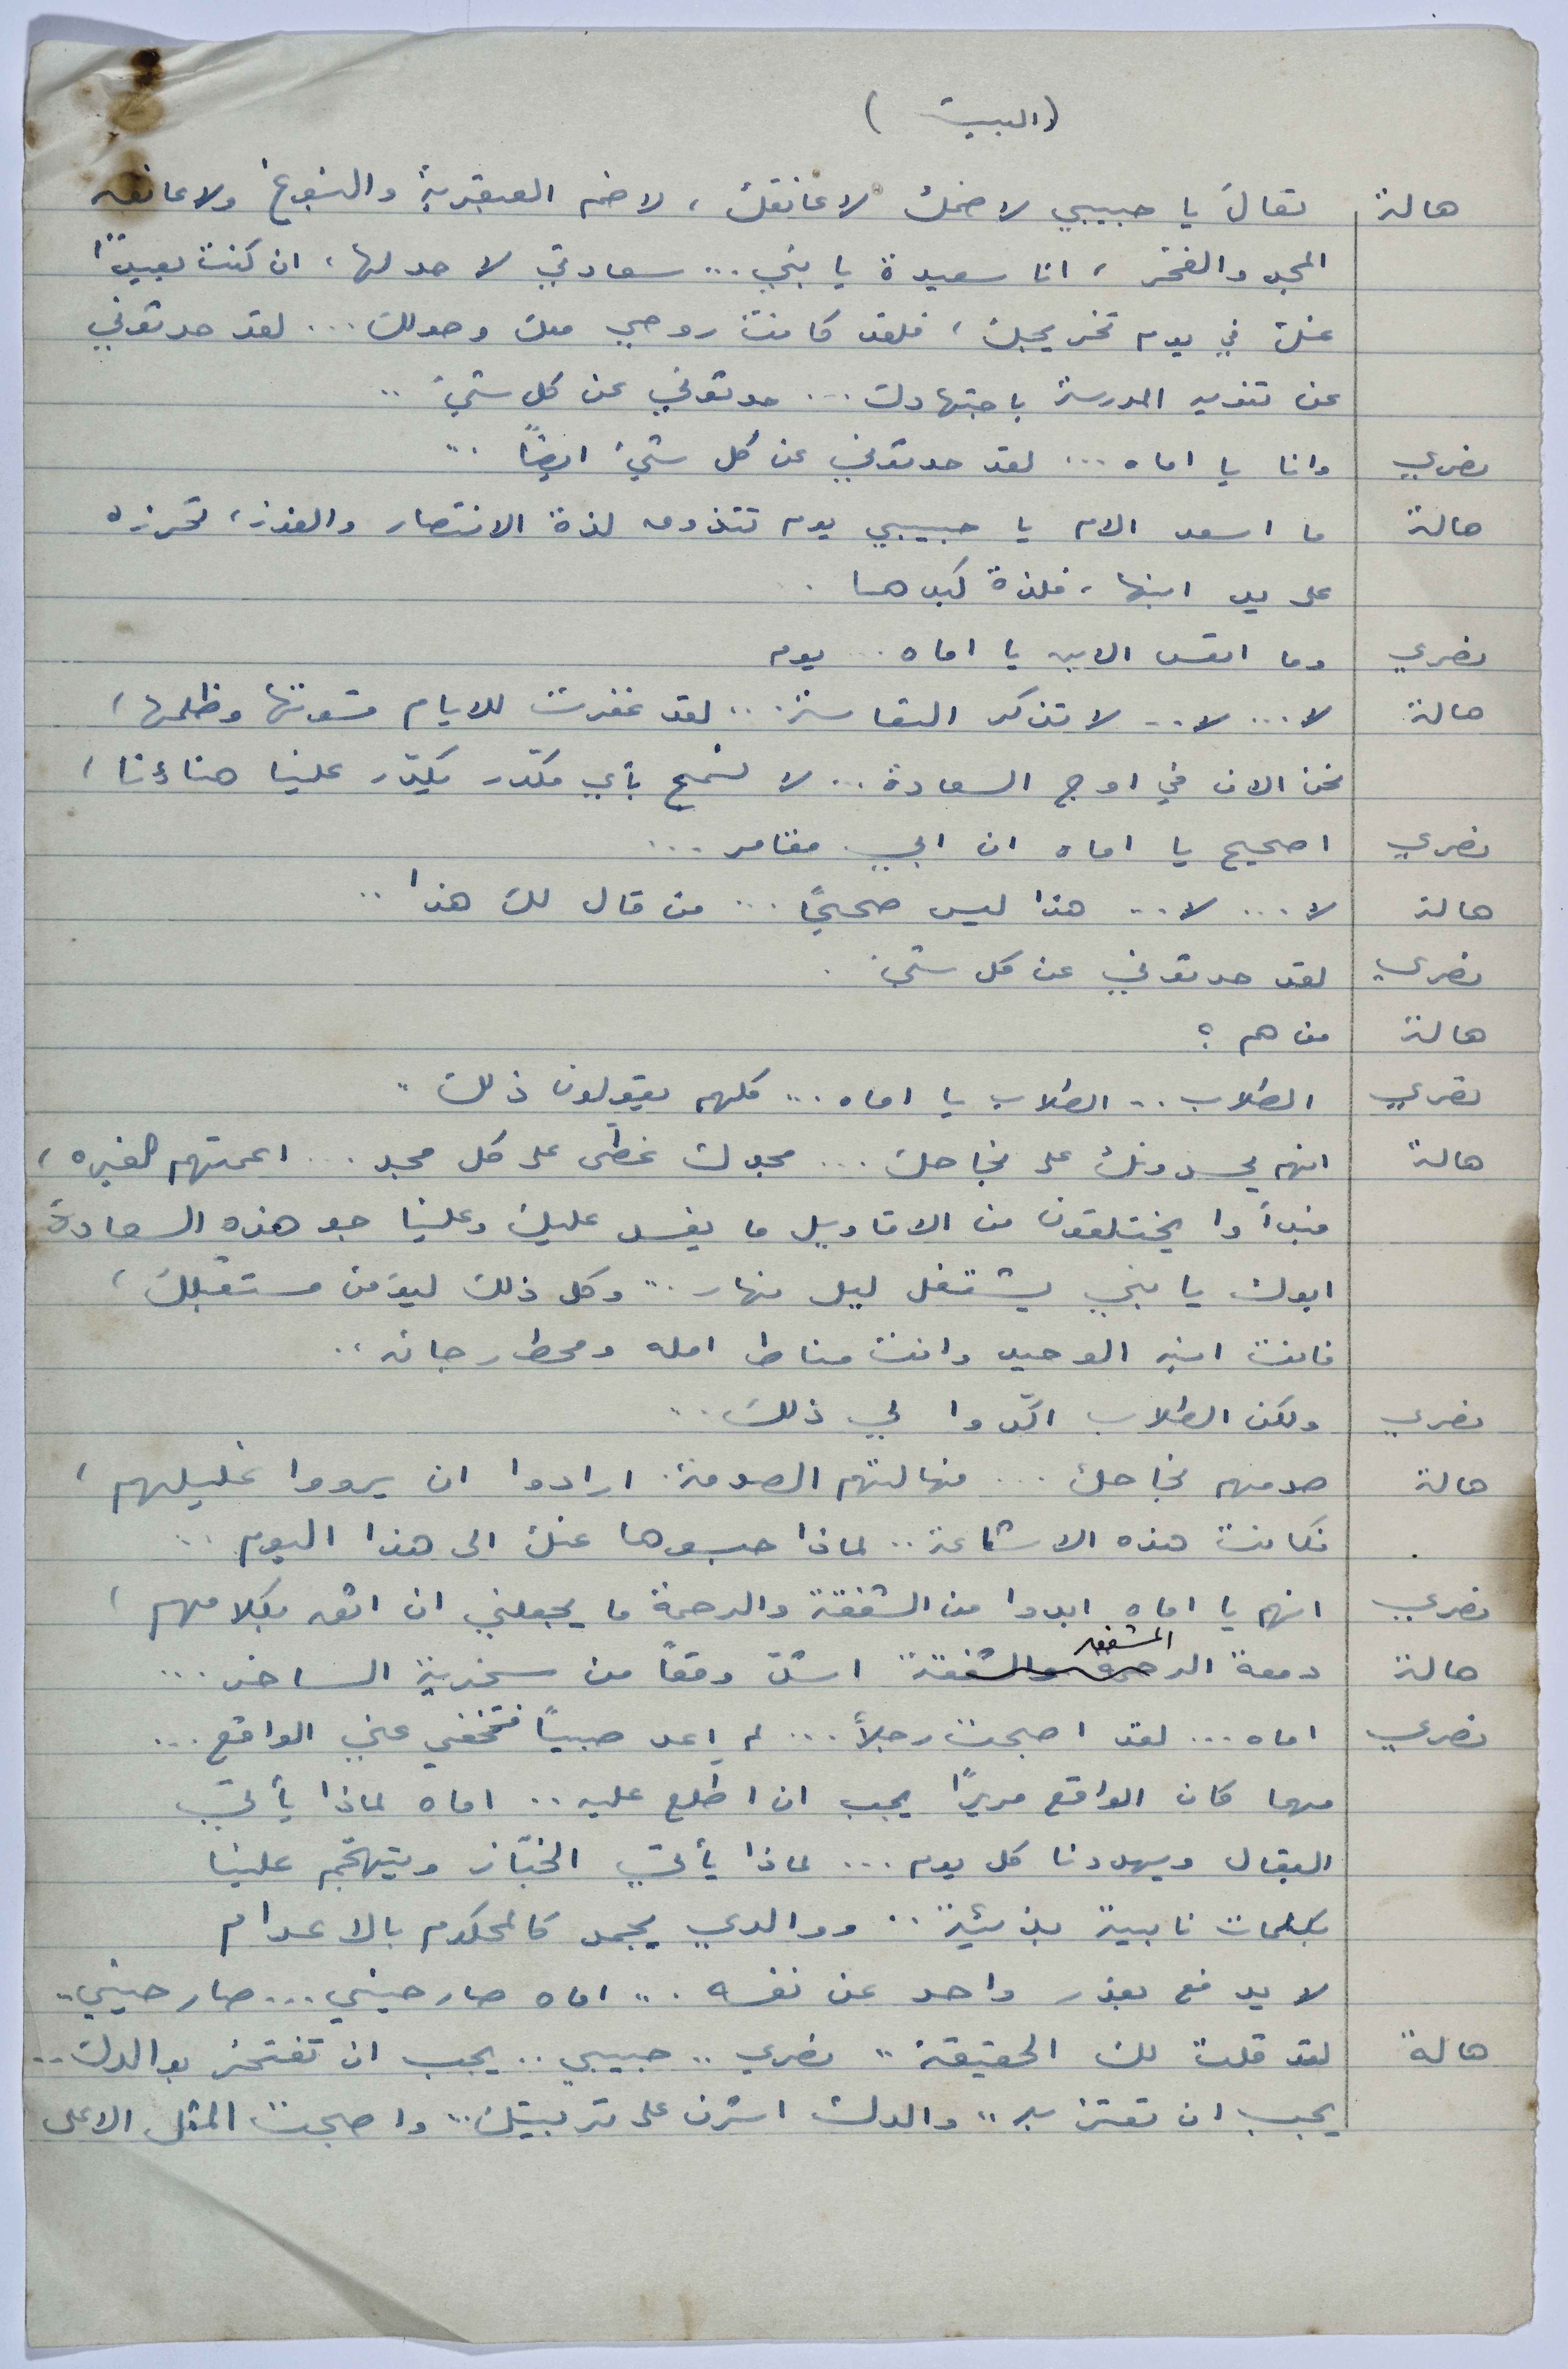 (البيت)
هالة تعال يا حبيبي لاضمك لاعانقك، لاضم العبقرية والنبوغ ولاعانق
المجد والفخر، انا سعيدة يا بني... سعادتي لا حد لها، ان كنت بعيدًا
عنك في يوم تخريجك، فلقد كانت روحي معك وحولك... لقد حدثوني
عن تنويه المدرسة باجتهادك... حدثوني عن كل شيء..
نصري وانا يا اماه... لقد حدثوني عن كل شيء ايضًا..
هالة ما اسعد الام يا حبيبي يوم تتذوق لذة الانتصار والفوز، تحرزه
على يد ابنها، فلذة كبدها.
نصري وما اتعس الابن يا اماه... يوم
هالة لا... لا... لا تذكر التعاسة... لقد غفرت للايام قسوتها وظلمها،
نحن الان في اوج السعادة... لا تسمح بأي مكدّر يكدّر علينا هناءنا،
نصري اصحيح يا اماه ان ابي مقامر...
هالة لا... لا... هذا ليس صحيحًا... من قال لك هذا..
نصري لقد حدثوني عن كل شيء.
هالة من هم؟
نصري الطلاب.. الطلاب يا اماه... كلهم يقولون ذلك..
هالة انهم يحسدونك على نجاحك... مجدك غطّى على كل مجد... اعمتهم الغيره،
فبدأوا يختلقون من الاقاويل ما يفسد عليك وعلينا جو هذه السعادة
ابوك يا بني يشتغل ليل نهار... وكل ذلك ليؤمن مستقبلك،
فانت ابنه الوحيد وانت مناط امله ومحط رجائه..
نصري ولكن الطلاب اكّدوا لي ذلك...
هالة صدمهم نجاحك... فهالتهم الصدمة. ارادوا ان يرووا غليلهم،
فكانت هذه الاشاعة.. لماذا حبسوها عنك الى هذا اليوم..
نصري انهم يا اماه ابدوا من الشفقة والرحمة ما يجعلني ان اثق بكلامهم،
المشفق
هالة دمعة الرحمة والشفقة اشدّ وقعًا من سخرية الساخر...
نصري اماه... لقد اصبحت رجلاً... لم اعد صبيًا فتخفي عني الواقع...
مهما كان الواقع مريرًا يجب ان اطلع عليه.. اماه لماذا يأتي
البقال ويهددنا كل يوم... لماذا يأتي الخبّاز ويتهجّم علينا
بكلمات نابية بذيئة.. ووالدي يجمد كالمحكوم بالاعدام
لا يدفع بعذر واحد عن نفسه... اماه صارحيني... صارحيني..
هالة لقد قلت لك الحقيقة.. نصري.. حبيبي.. يجب ان تفتخر بوالدك..
يجب ان تعتز به.. والدك اشرف على تربيتك.. واصبحت المثل الاعلى